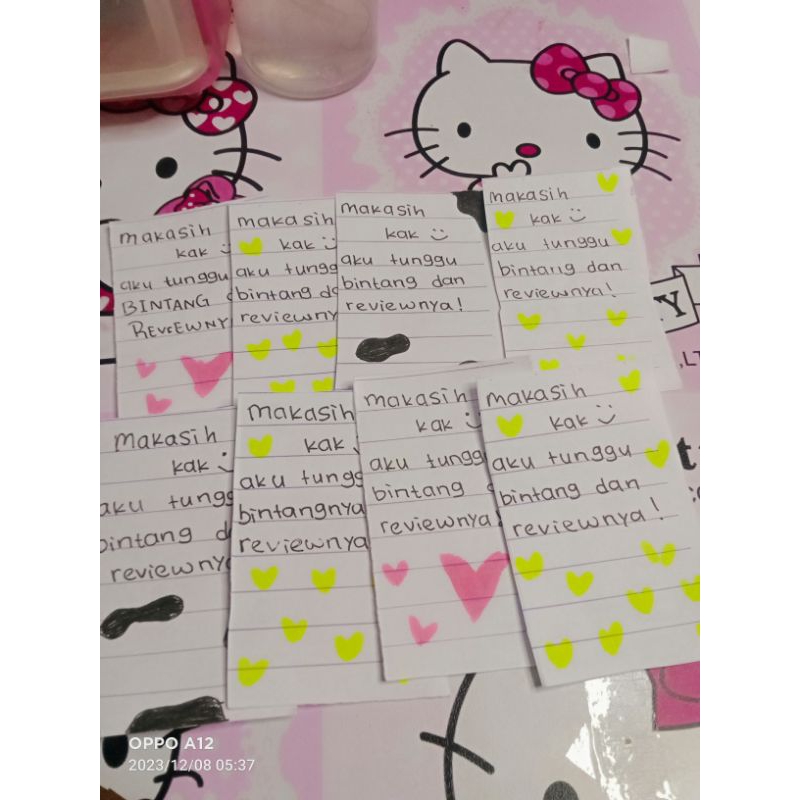 makasih
kak :)
aku tunggu
BINTANG
REVIEWNY
makasih
kak :)
aku tungg
bintang da
reviewny
makasih
kak :)
aku tunggu
bintang dan
reviewnya!
makasih
kak :)
aku tunggu
bintang dan
reviewnya!
makasih
kak :)
aku tungg
bintang d
reviewny
makasih
kak
aku tungg
bintangnya
reviewnya
makasih
kak :)
aku tungg
bintang
reviewnya!
makasih
kak :)
aku tunggu
bintang dan
reviewnya!
OPPO A12
2023/12/08 05:37